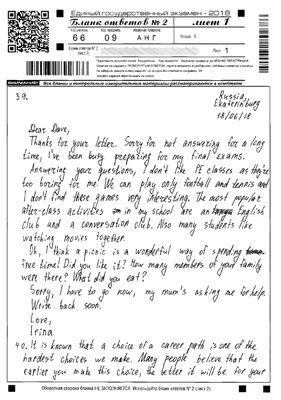 Единый государственный экзамен - 2018
Бланк ответов № 2
лист 1
Код региона
Код предмета
Название предмета
66
09
АНГ
Резерв - 5
Лист
1
ВНИМАНИЕ! Все бланки и контрольные измерительные материалы рассматриваются в комплекте
39.
Russia,
Ekaterinburg
18/06/18
Dear Dave,
Thanks for your letter. Sorry for not answering for a long
time, I've been busy preparing for my final exams.
Answering your questions, I don't like PE classes as they're
too boring for me. We can play only football and tennis and
I don't find these games very interesting. The most popular
after-class activities in my school are an English
club and a conversation club. Also many students like
watching movies together.
Oh, I think a picnic is a wonderful way of spending
free time! Did you like it? How many members of your family
were there? What did you eat?
Sorry, I have to go now, my mum's asking me for help.
Write back soon.
Love,
Irina
40. It is known that a choice of a career path is one of the
hardest choices we make. Many people believe that the
earlier you make this choice, the better it will be for your
Оборотная сторона бланка НЕ ЗАПОЛНЯЕТСЯ. Используйте бланк ответов № 2 (лист 2)